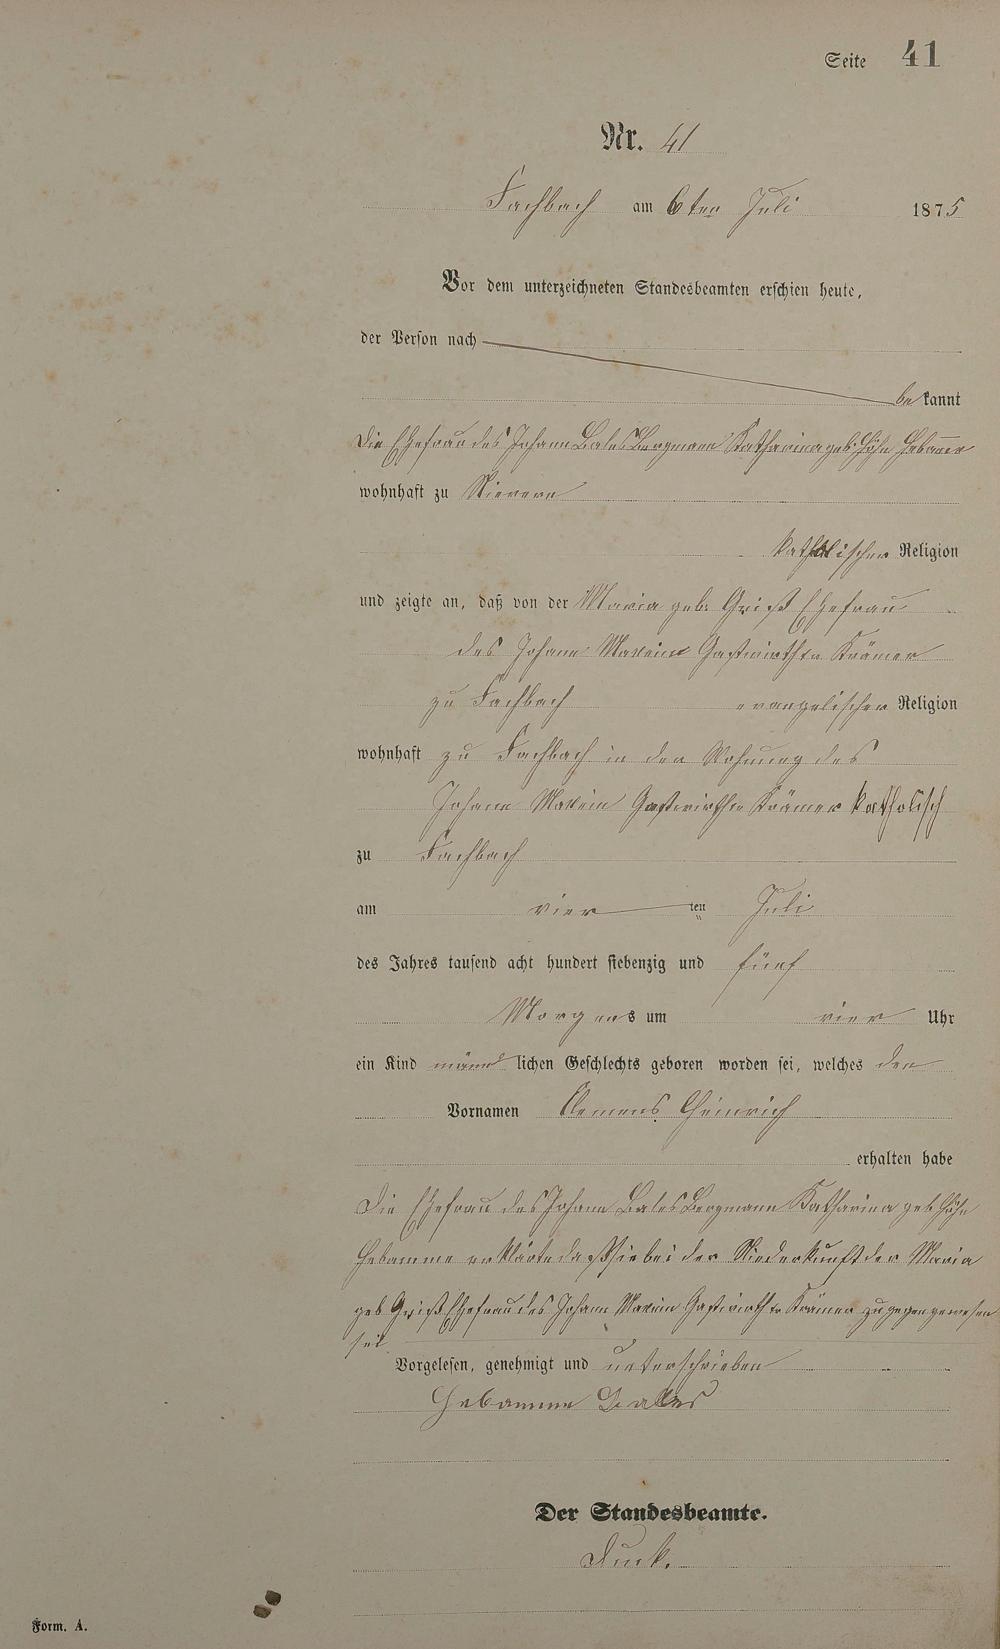 Seite 41
Nr. 41
Fachbach am 6ten Juli 1875
Vor dem unterzeichneten Standesbeamten erschien heute,
der Person nach
bekannt
Die Ehefrau des Johann Bales Bergmann Katharina geb. Höhn Hebamme
wohnhaft zu Nievern
katholischer Religion
und zeigte an, daß von der Maria geb. Ehefrau
des Johann Gastwirth Krämer
zu Fachbach evangelischer Religion
wohnhaft zu Fachbach in der Wohnung des
Johann Gastwirth Krämer katholisch
zu Fachbach
am vier ten Juli
des Jahres tausend acht hundert siebenzig und fünf
Morgens um vier Uhr
ein Kind männlichen Geschlechts geboren worden sei, welches den
Vornamen Clemens Heinrich
erhalten habe
Die Ehefrau des Johann Bales Bergmann Katharina geb. Höhn
Hebamme erklärte daß sie bei der Niederkunft der Maria
geb Ehefrau des Johann Gastwirth Krämer zugegen gewesen
sei
Vorgelesen, genehmigt und unterschrieben
Hebamme Bales
Der Standesbeamte.
Form. A.